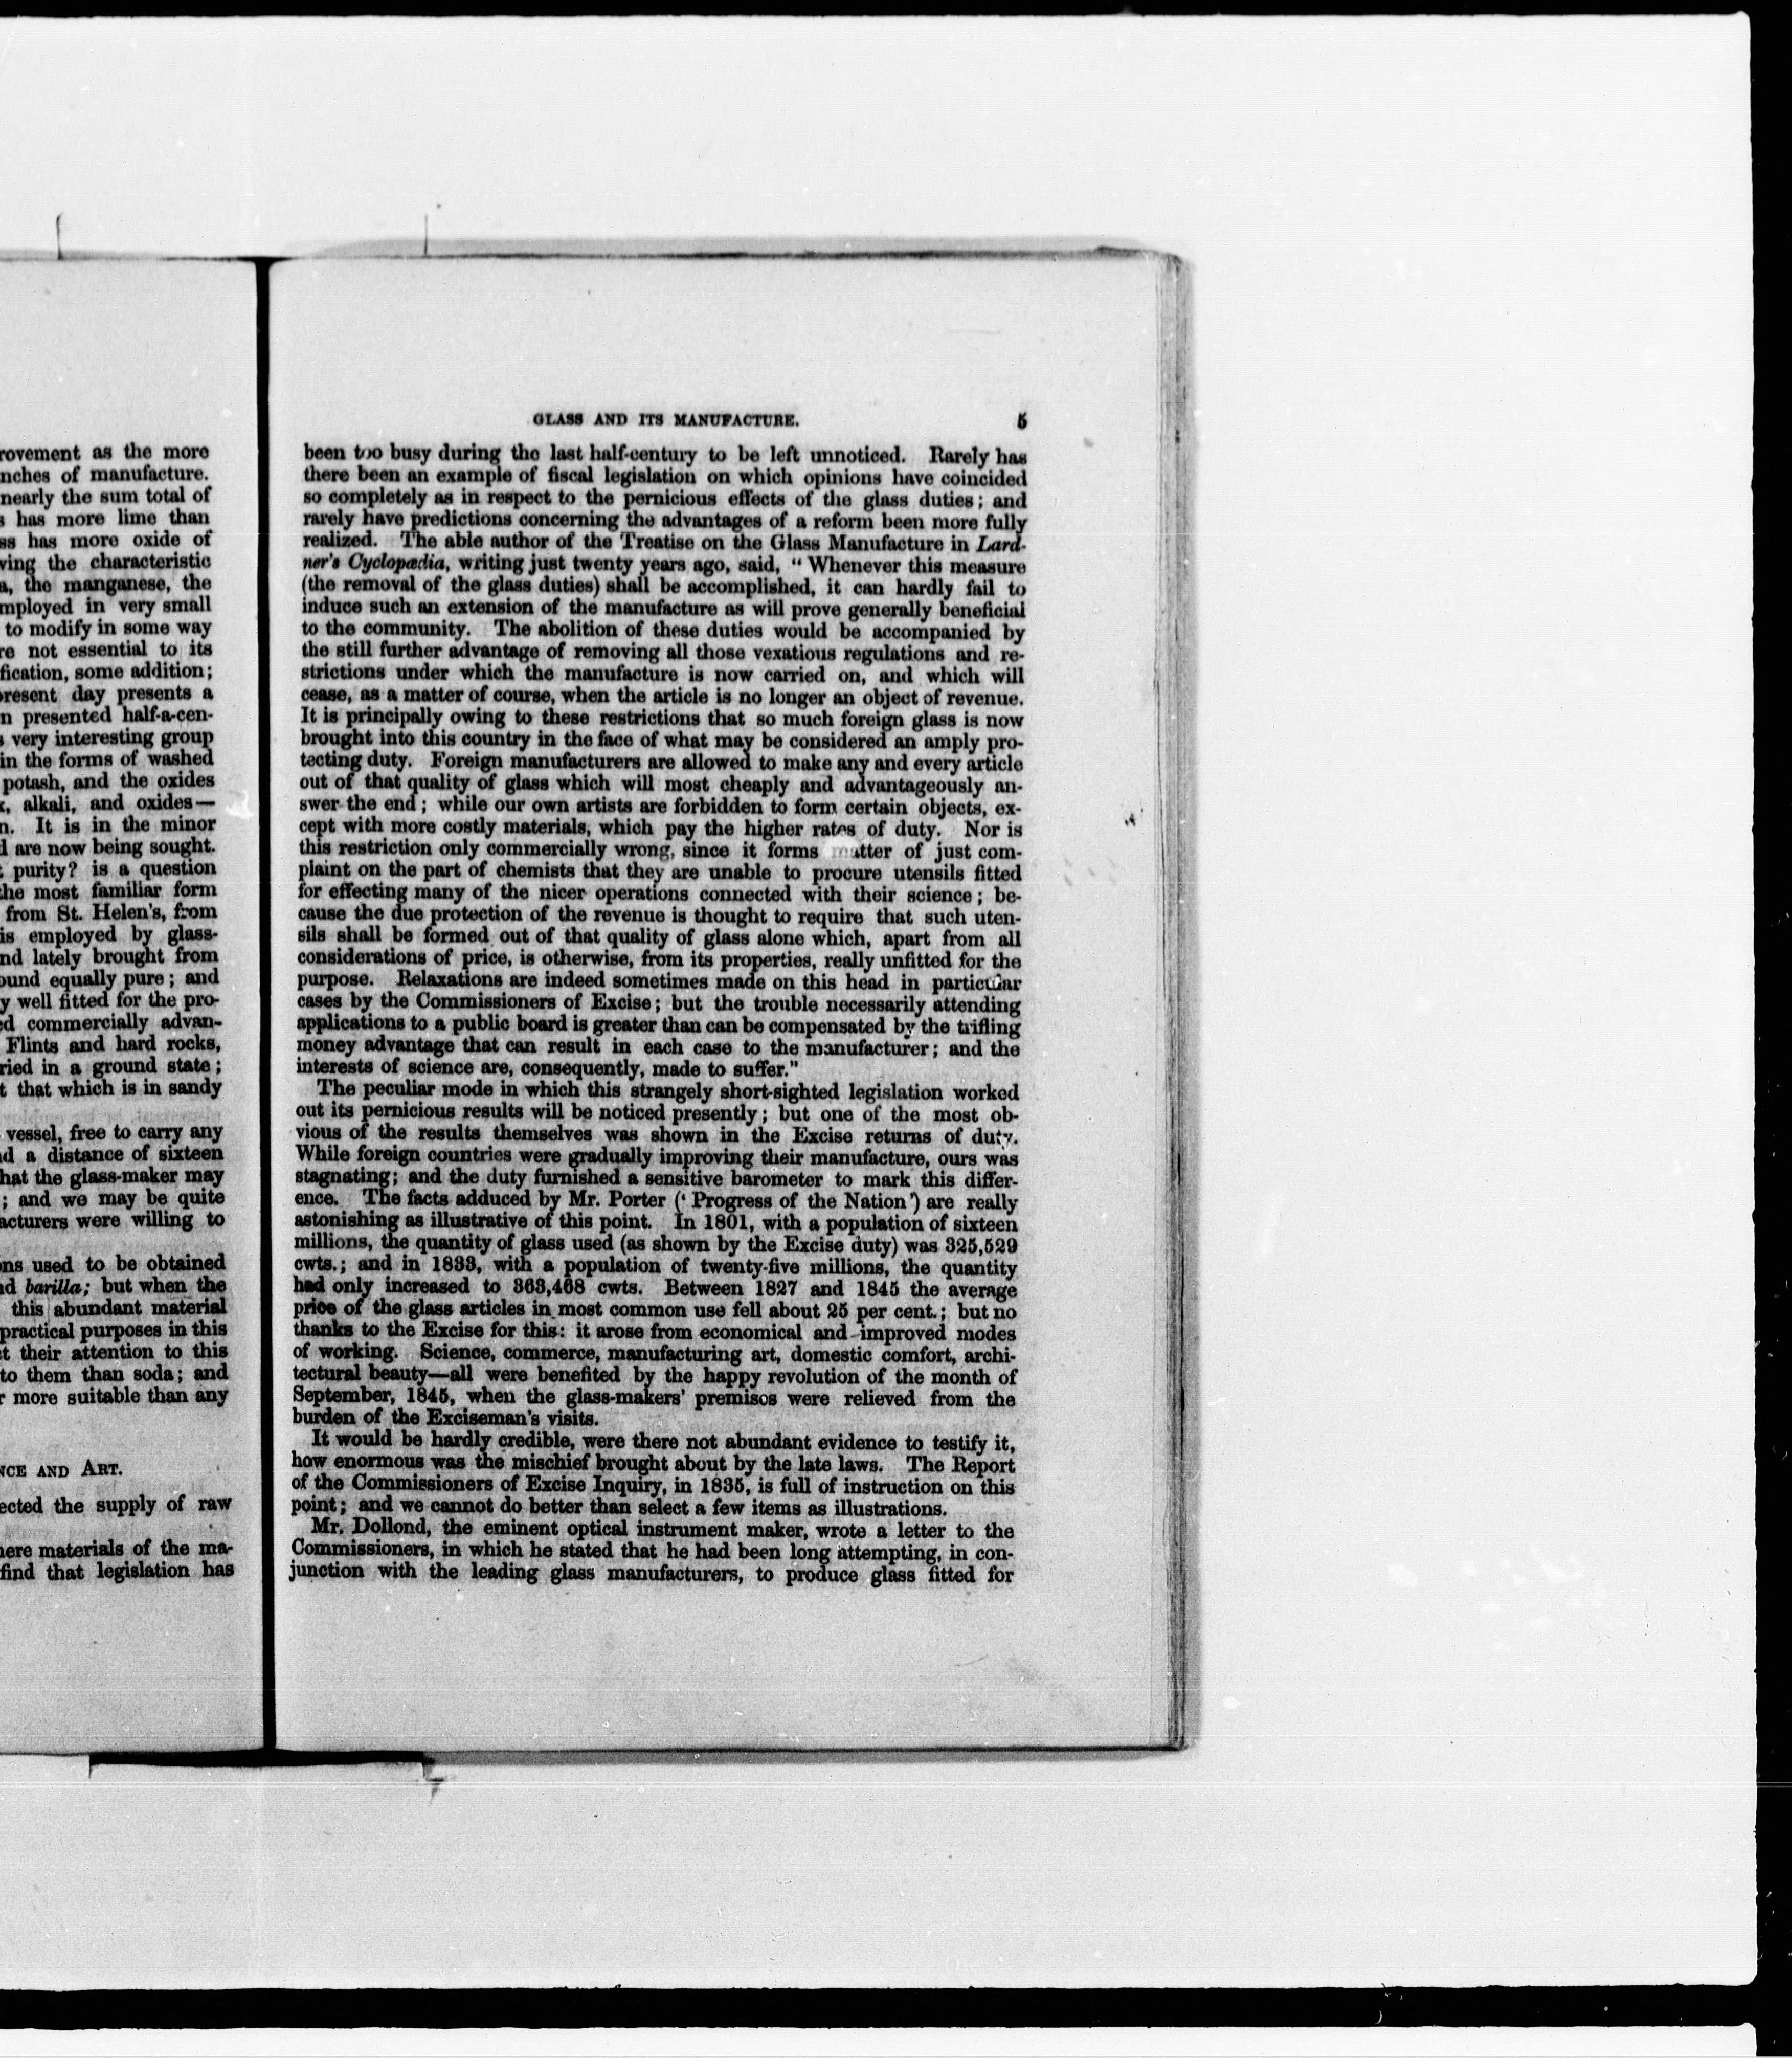 rovement as the more
nches of manufacture.
nearly the sum total of
s has more lime than
ss has more oxide of
ving the characteristic
a, the manganese, the
mployed in very small
to modify in some way
re not essential to its
fication, some addition;
present day presents a
n presented half-a-cen-
s very interesting group
in the forms of washed
potash, and the oxides
x, alkali, and oxides—
n. It is in the minor
d are now being sought.
t purity? is a question
the most familiar form
from St. Helen's, from
is employed by glass-
nd lately brought from
ound equally pure; and
y well fitted for the pro-
ed commercially advan-
Flints and hard rocks,
ried in a ground state;
t that which is in sandy
vessel, free to carry any
nd a distance of sixteen
hat the glass-maker may
; and we may be quite
acturers were willing to
ons used to be obtained
nd barilla; but when the
this abundant material
practical purposes in this
ct their attention to this
to them than soda; and
r more suitable than any
NCE AND ART.
ected the supply of raw
here materials of the ma-
find that legislation has
GLASS AND ITS MANUFACTURE. 5
been too busy during the last half-century to be left unnoticed. Rarely has
there been an example of fiscal legislation on which opinions have coincided
so completely as in respect to the pernicious effects of the glass duties; and
rarely have predictions concerning the advantages of a reform been more fully
realized. The able author of the Treatise on the Glass Manufacture in Lard-
ner's Cyclopædia, writing just twenty years ago, said, "Whenever this measure
(the removal of the glass duties) shall be accomplished, it can hardly fail to
induce such an extension of the manufacture as will prove generally beneficial
to the community. The abolition of these duties would be accompanied by
the still further advantage of removing all those vexatious regulations and re-
strictions under which the manufacture is now carried on, and which will
cease, as a matter of course, when the article is no longer an object of revenue.
It is principally owing to these restrictions that so much foreign glass is now
brought into this country in the face of what may be considered an amply pro-
tecting duty. Foreign manufacturers are allowed to make any and every article
out of that quality of glass which will most cheaply and advantageously an-
swer the end; while our own artists are forbidden to form certain objects, ex-
cept with more costly materials, which pay the higher rates of duty. Nor is
this restriction only commercially wrong, since it forms matter of just com-
plaint on the part of chemists that they are unable to procure utensils fitted
for effecting many of the nicer operations connected with their science; be-
cause the due protection of the revenue is thought to require that such uten-
sils shall be formed out of that quality of glass alone which, apart from all
considerations of price, is otherwise, from its properties, really unfitted for the
purpose. Relaxations are indeed sometimes made on this head in particular
cases by the Commissioners of Excise; but the trouble necessarily attending
applications to a public board is greater than can be compensated by the trifling
money advantage that can result in each case to the manufacturer; and the
interests of science are, consequently, made to suffer."
The peculiar mode in which this strangely short-sighted legislation worked
out its pernicious results will be noticed presently; but one of the most ob-
vious of the results themselves was shown in the Excise returns of duty.
While foreign countries were gradually improving their manufacture, ours was
stagnating; and the duty furnished a sensitive barometer to mark this differ-
ence. The facts adduced by Mr. Porter ('Progress of the Nation') are really
astonishing as illustrative of this point. In 1801, with a population of sixteen
millions, the quantity of glass used (as shown by the Excise duty) was 325,529
cwts.; and in 1833, with a population of twenty-five millions, the quantity
had only increased to 363,468 cwts. Between 1827 and 1845 the average
price of the glass articles in most common use fell about 25 per cent.; but no
thanks to the Excise for this: it arose from economical and improved modes
of working. Science, commerce, manufacturing art, domestic comfort, archi-
tectural beauty—all were benefited by the happy revolution of the month of
September, 1845, when the glass-makers' premises were relieved from the
burden of the Exciseman's visits.
It would be hardly credible, were there not abundant evidence to testify it,
how enormous was the mischief brought about by the late laws. The Report
of the Commissioners of Excise Inquiry, in 1835, is full of instruction on this
point; and we cannot do better than select a few items as illustrations.
Mr. Dollond, the eminent optical instrument maker, wrote a letter to the
Commissioners, in which he stated that he had been long attempting, in con-
junction with the leading glass manufacturers, to produce glass fitted for